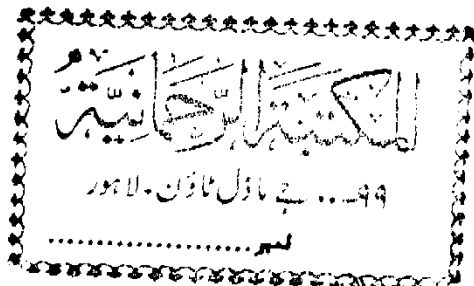 المكتبة الرحمانية
۹۹۔۔۔ جے ماڈل ٹاؤن۔ لاہور
نمبر........................